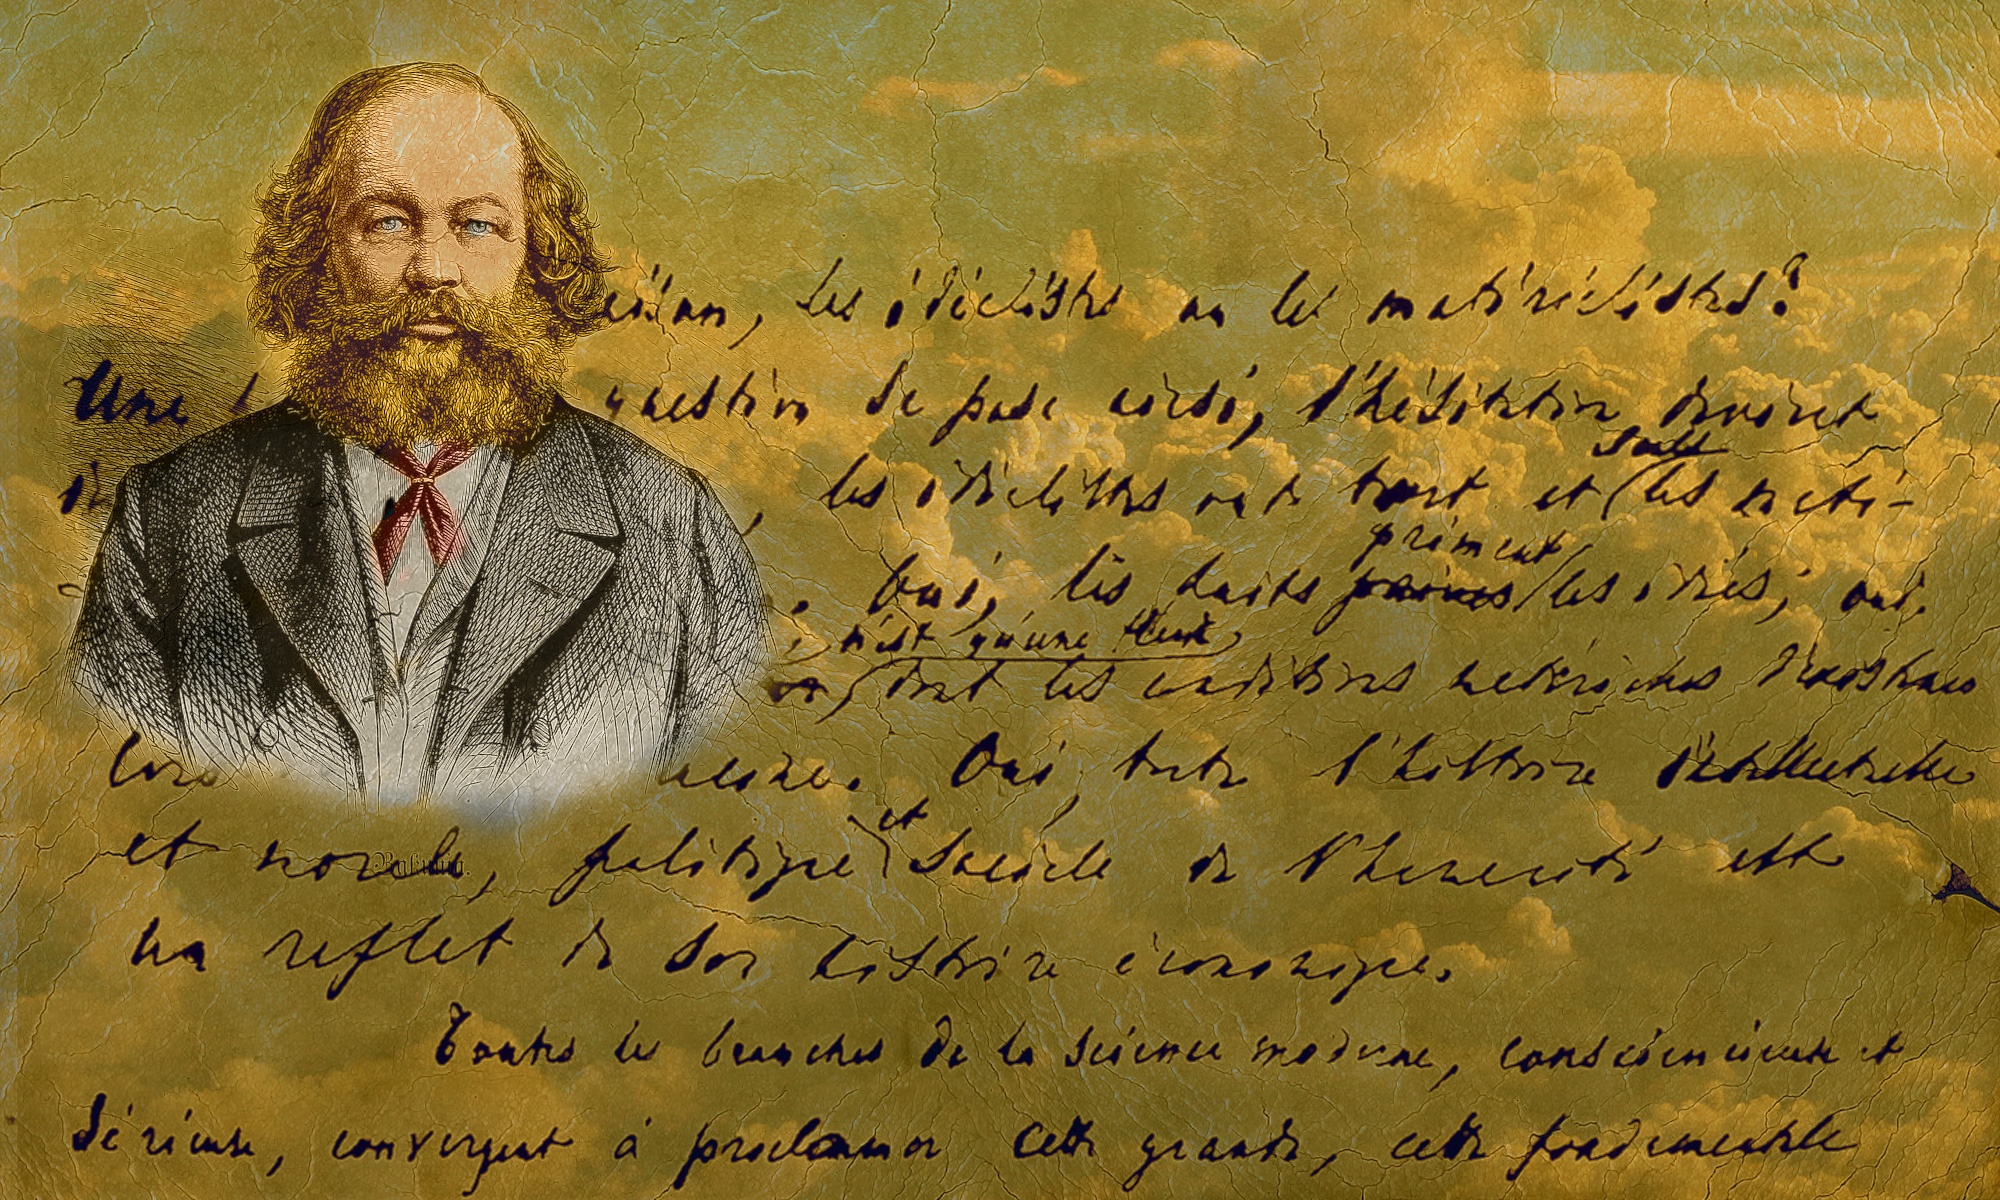 raison, les idéalistes ou les matérialistes?
Une question se pose ainsi, l'hésitation devient
les idéalistes ont tort et seuls les maté-
Oui, les faits priment les idées; oui,
n'est qu'une fleur
dont les conditions matérielles d'existence
racine. Oui, toute l'histoire intellectuelle
et morale, politique et sociale de l'humanité est
un reflet de son histoire économique.
Bakunin.
Toutes les branches de la science moderne, consciencieuse et
sérieuse, convergent à proclamer cette grande, cette fondamentale